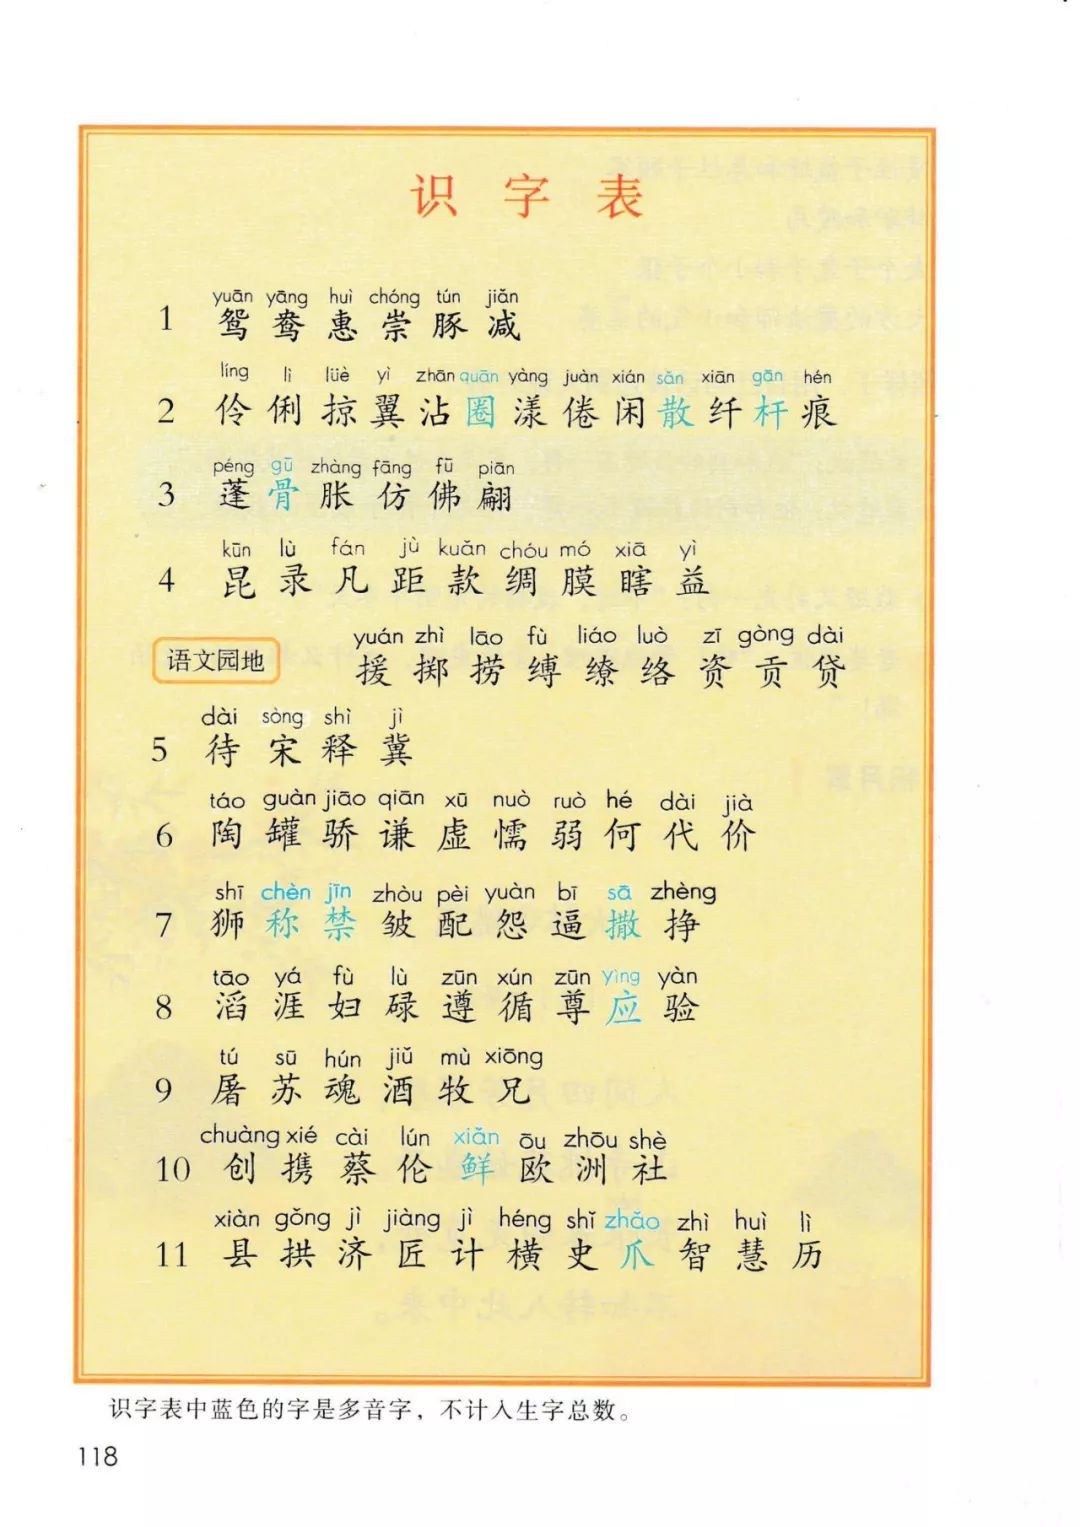 识字表
yuān yāng huì chóng tún jiǎn
1 鸳 鸯 惠 崇 豚 减
líng lì lüè yì zhān quān yàng juàn xián sǎn xiān gān hén
2 伶 俐 掠 翼 沾 圈 漾 倦 闲 散 纤 杆 痕
péng gū zhàng fǎng fú piān
3 蓬 骨 胀 仿 佛 翩
kūn lù fán jù kuǎn chóu mó xiā yì
4 昆 录 凡 距 款 绸 膜 瞎 益
yuán zhì lāo fù liáo luò zī gòng dài
语文园地 援 掷 捞 缚 缭 络 资 贡 贷
dài sòng shì jì
5 待 宋 释 冀
táo guàn jiāo qiān xū nuò ruò hé dài jià
6 陶 罐 骄 谦 虚 懦 弱 何 代 价
shī chèn jīn zhòu pèi yuàn bī sā zhèng
7 狮 称 禁 皱 配 怨 逼 撒 挣
tāo yá fù lù zūn xún zūn yìng yàn
8 滔 涯 妇 碌 遵 循 尊 应 验
tú sū hún jiǔ mù xiōng
9 屠 苏 魂 酒 牧 兄
chuàng xié cài lún xiǎn ōu zhōu shè
10 创 携 蔡 伦 鲜 欧 洲 社
xiàn gǒng jì jiàng jì héng shǐ zhǎo zhì huì lì
11 县 拱 济 匠 计 横 史 爪 智 慧 历
识字表中蓝色的字是多音字，不计入生字总数。
118